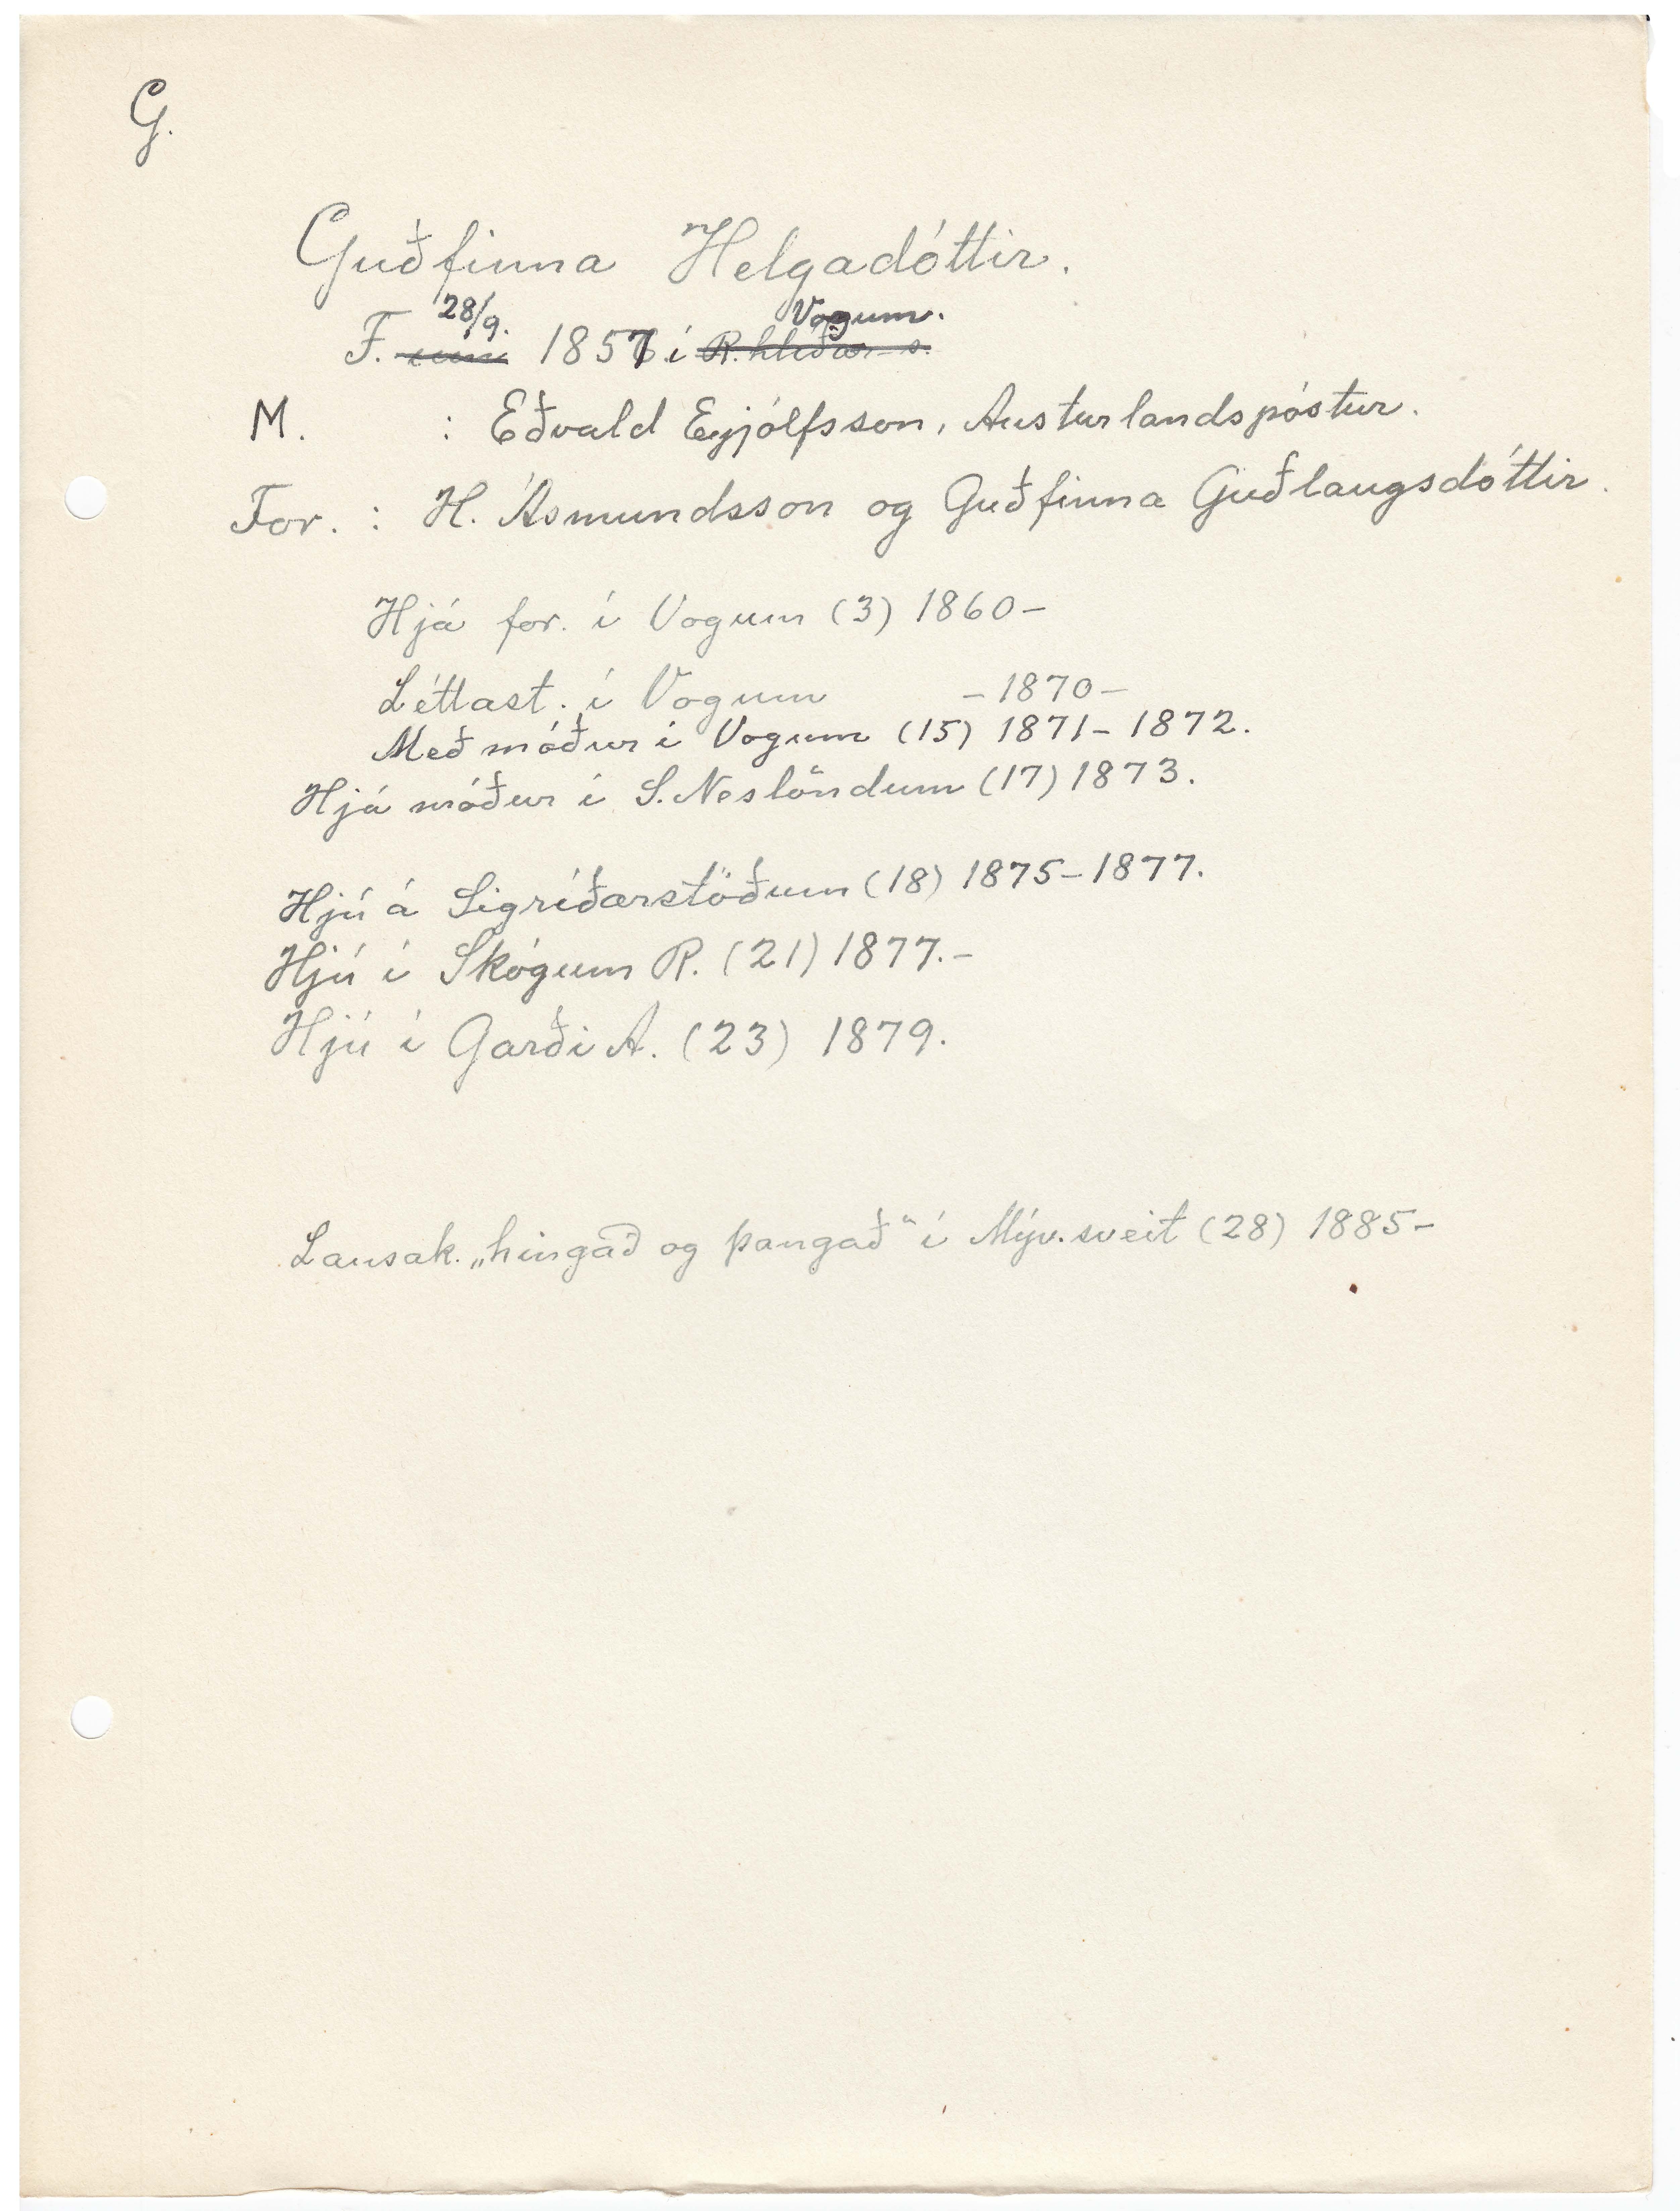 G.
Guðfinna Helgadóttir.
28/9. Vogum.
F. 1857 í R.hlíðar s.
M. : Eðvald Eyjólfsson, Austurlandspóstur.
For. : H. Ásmundsson og Guðfinna Guðlaugsdóttir.
Hjá for. í Vogum (3) 1860-
Léttast. í Vogum - 1870 -
Með móður í Vogum (15) 1871-1872.
Hjá móður í S. Neslöndum (17) 1873.
Hjú á Sigríðarstöðum (18) 1875-1877.
Hjú í Skógum R. (21) 1877.-
Hjú í Garði A. (23) 1879.
Lausak. „hingað og þangað“ í Mýv.sveit (28) 1885-